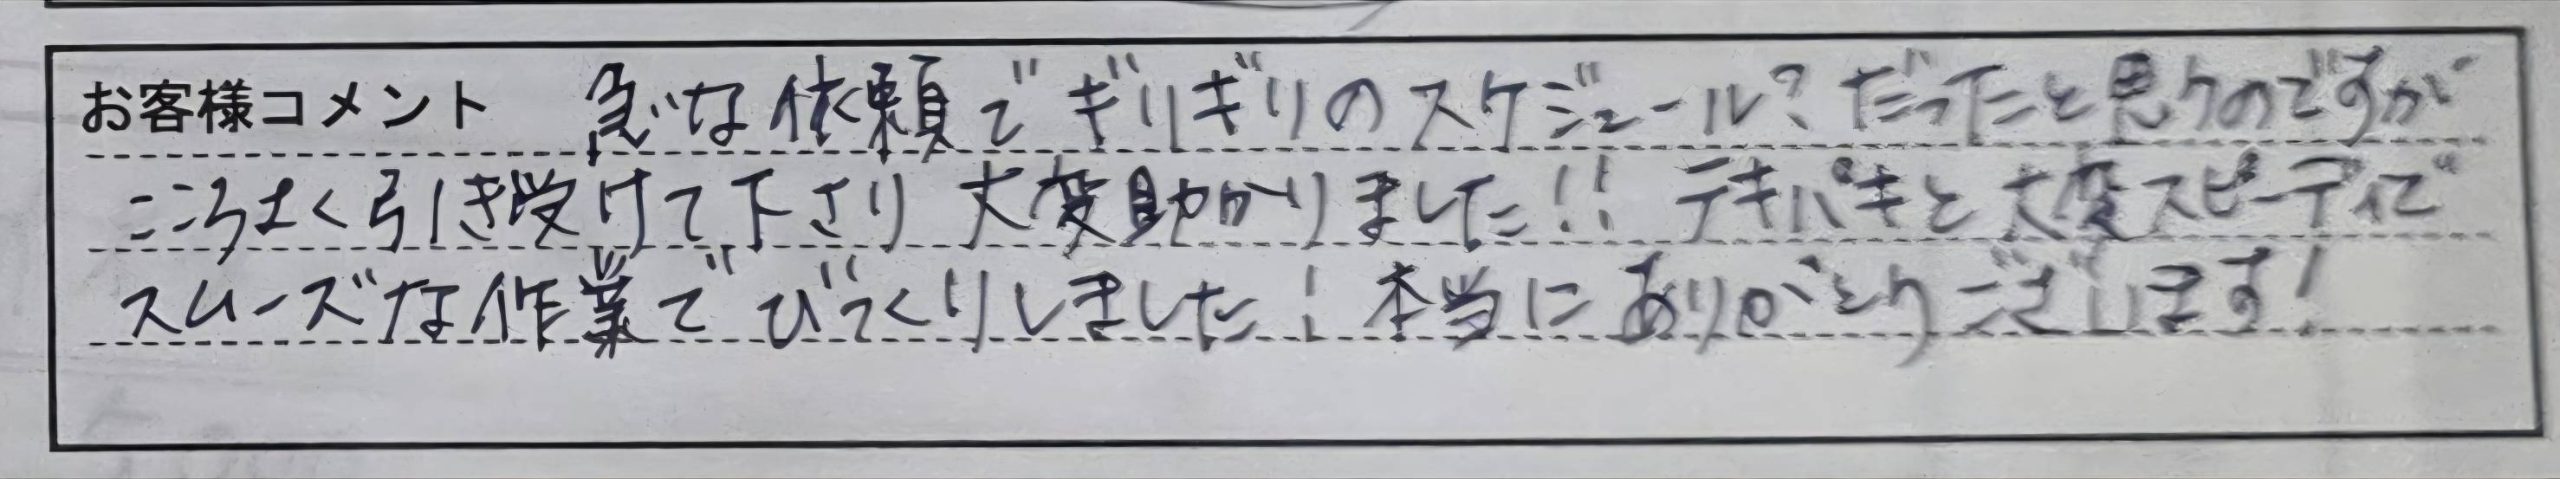 お客様コメント 急な依頼でぎりぎりのスケジュール?だったと思うのですが
こころよく引き受けて下さり 大変助かりました!! テキパキと大変スピーディで
スムーズな作業でびっくりしました! 本当にありがとうございます!